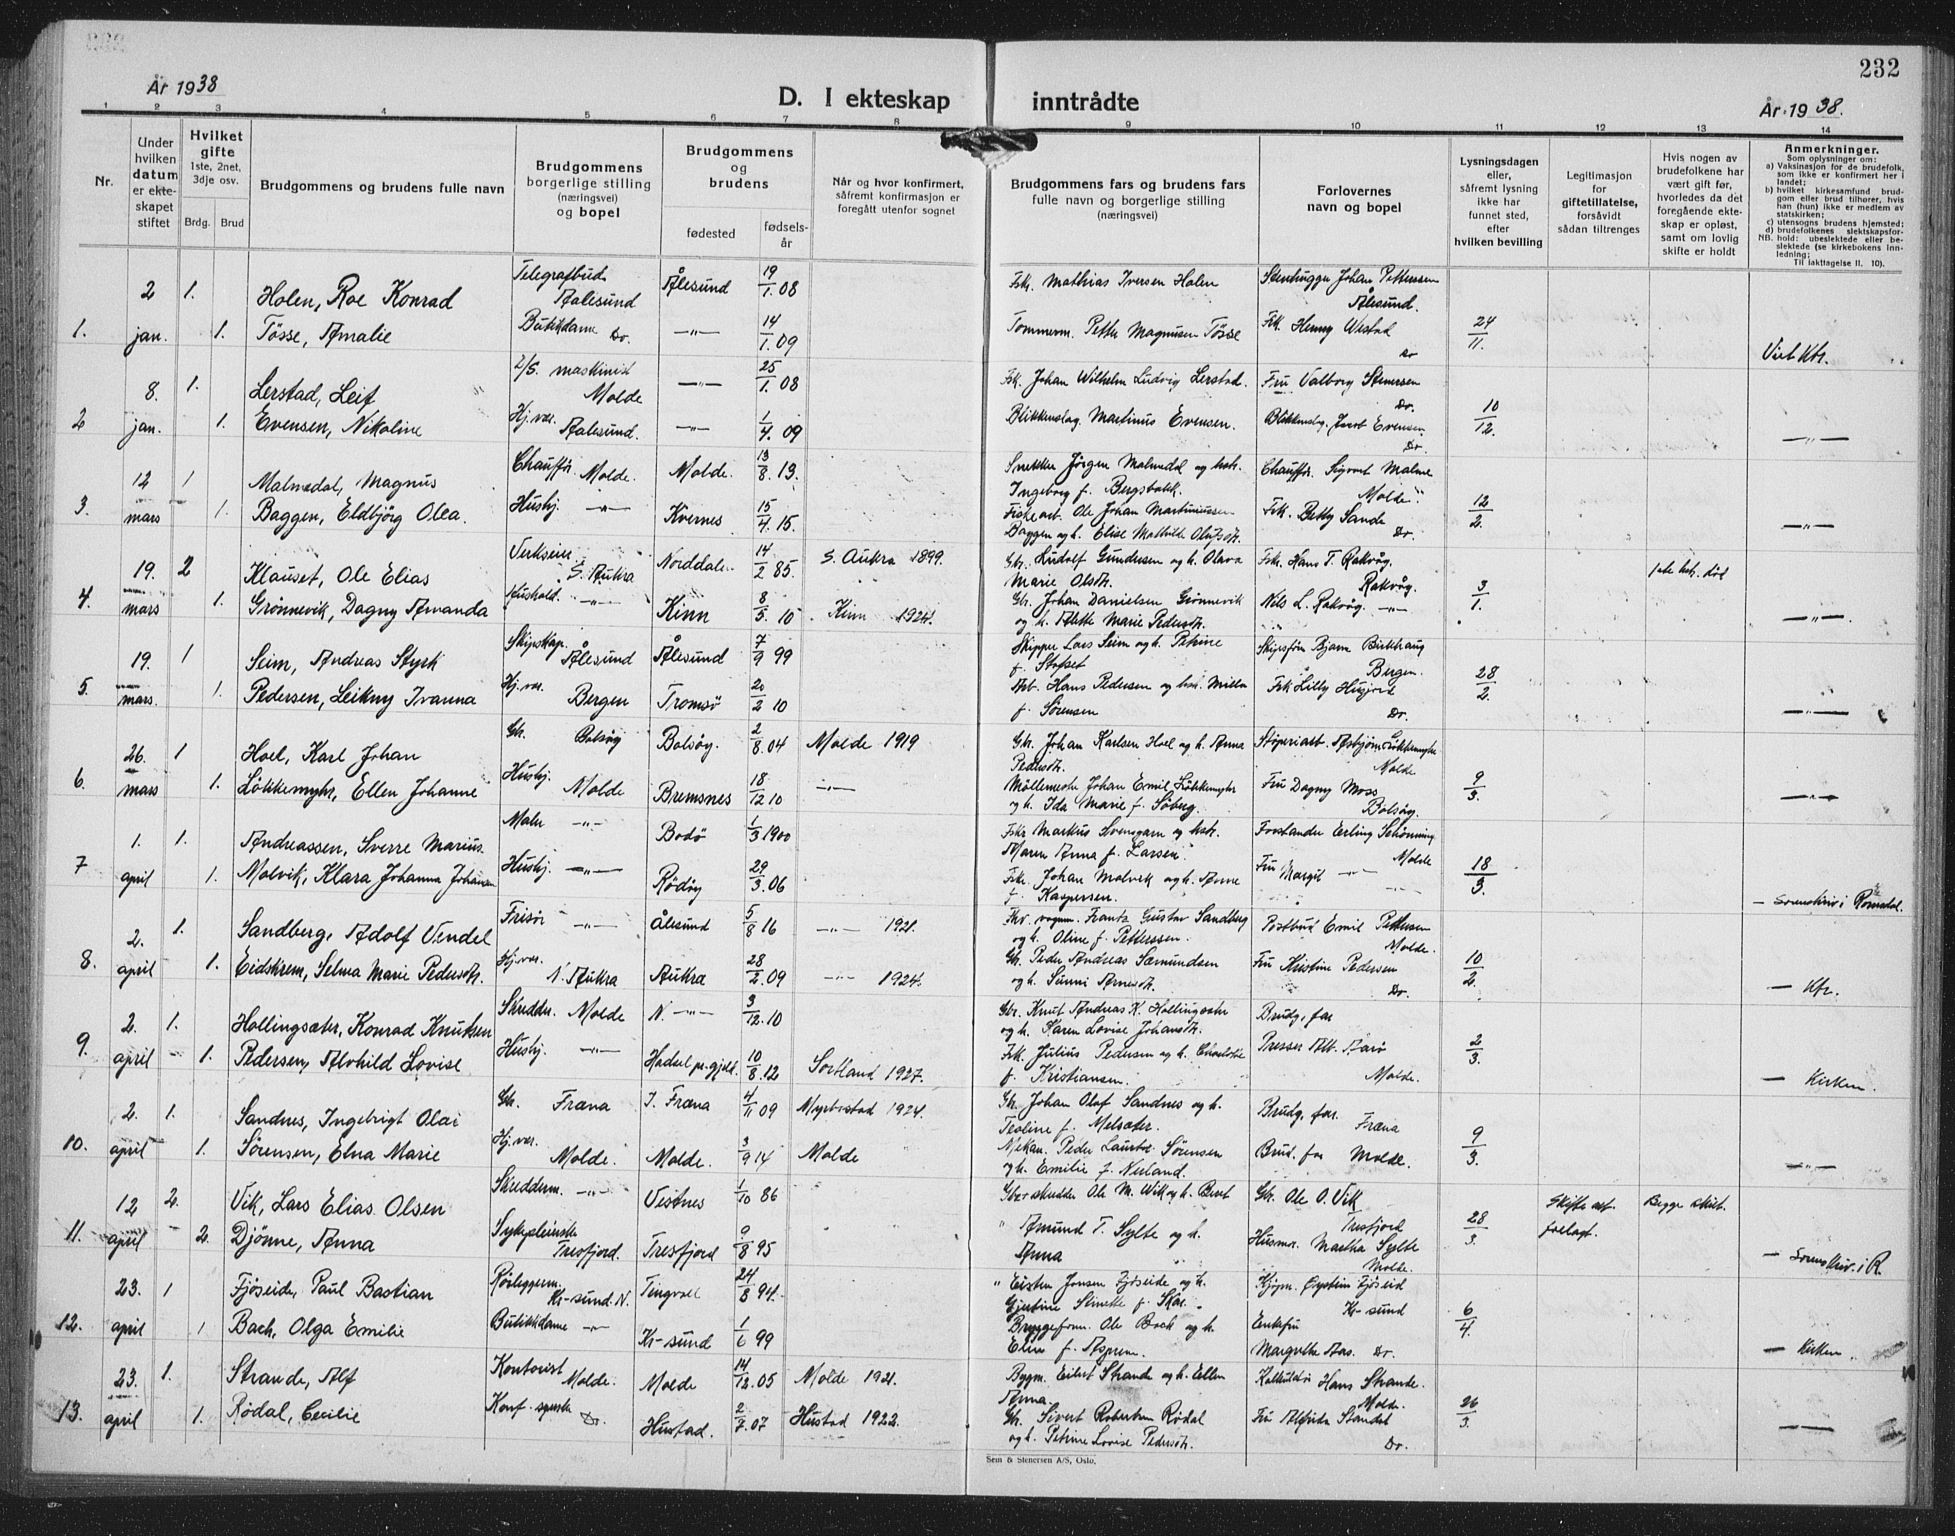 232
År 1938
D. I ekteskap inntrådte
År 1938.
1 2 3 4 5 6 7 8 9 10 11 12 13 14
Nr.
Under hvilken datum er ekteskapet stiftet
Hvilket gifte
1ste, 2net, 3dje osv.
Brdg. Brud
Brudgommens og brudens fulle navn
Brudgommens borgerlige stilling (næringsvei) og bopel
Brudgommens og brudens
fødested
fødselsår
Når og hvor konfirmert, såfremt konfirmasjon er foregått utenfor sognet
Brudgommens fars og brudens fars fulle navn og borgerlige stilling (næringsvei)
Forlovernes navn og bopel
Lysningsdagen eller, såfremt lysning ikke har funnet sted, efter hvilken bevilling
Legitimasjon for giftetillatelse, forsåvidt sådan tiltrenges
Hvis nogen av brudefolkene har vært gift før, hvorledes da det foregående ekteskap er opløst, samt om lovlig skifte er holdt
Anmerkninger.
Som oplysninger om:
a) Vaksinasjon for de brudefolk, som ikke er konfirmert her i landet;
b) hvilket kirkesamfund brudgom eller brud tilhører, hvis han (hun) ikke er medlem av statskirken;
c) utensogns brudens hjemsted;
d) brudefolkenes slektskapsforhold: ubeslektede eller beslektede (se kirkebokens innledning;
NB. Til iakttagelse ll. 10).
2 1. Holen, Roe Konrad Telegrafbud Aalesund Ålesund 19/1.08 Fsk. Mathias Iversen Holen Stenhugger Johan Pettersen Ålesund.
1. jan. 1. Tösse, Amalie Butikkdame Do. —"— 14/1.09 Tømmerm. Petter Magnusen Tösse Frk. Henny Westad Do 24/11. Viet Ktr.
8. 1. Lerstad, Leif maskinist Molde —"— 25/1.08 Fsk. Johan Wilhelm Ludvig Lerstad. Fru Valborg Stenersen Do.
2 jan. 1. Evensen, Nikoline Hj.vær. Aalesund. —"— 1/4.09 Blikkenslag. Martinus Evensen. Blikkenslag. Evensen Do. 10/12. —"—
12 1 Malmedal, Magnus Chauffør. Molde. Molde. 13/8.13. Snekker Jörgen Malmedal og hstr. Ingeborg f. Bergsbakk. Chauffør. Sigvart Malme Molde
3. mars 1. Baggen, Eldbjörg Olea. Hushj. —"— Kvernes 15/4.15. Fiskearb. Ole Johan Martiniussen Baggen og h. Elise Mathilde Olufsdtr. Frk. Betty Sande Do. 12/2. —"—
19. 2 Klauset, Ole Elias Verkseier S. Aukra Norddalen 14/2 85. S. Aukra 1899. Gbr. Rudolf Gundersen og h. Olava Marie Olsdtr. Fsk. Hans T. Rakvåg. Rakvåg. 1ste hstr. död
4. mars 1. Grönnevik, Dagny Amanda Hushold. —"— Kinn 8/5. 10 Kinn 1924. Gbr. Johan Danielsen Grönnevik og h. Alette Marie Pedersdtr. Nils L. Rakvåg. —"— 3/1. —"—
19. 1 Seim, Andreas Styrk Skipskap. Ålesund Ålesund 7/9 99 Skipper Lars Seim og h. Petrine f. Stafset Skipsför. Bjarne Birkhaug Bergen.
5. mars. 1. Pedersen, Leikny Ivanna Hj.vær. Bergen Tromsö 20/2 10 Arb. Hans Pedersen og hstr. Milla f. Sörensen Frk Lilly Do. 28/2. —"—
26. 1 Hoel, Karl Johan Gbr. Bolsöy Bolsöy. 2/8.04 Molde 1919 Gbr. Johan Karlsen Hoel og h. Anna Pedersdtr. Støperiarb. Asbjörn Lökkemyhr Molde
6. mars 1. Lökkemyhr, Ellen Johanne Hushj. Molde Bremsnes 18/12 10 —"— Möllemester Johan Emil Lökkemyhr og h. Ida Marie f. Söberg. Fru Dagny Moss Bolsöy. 9/3. —"—
1. 1. Andreassen, Sverre Marius Maler —"— Bodö 1/3 1900 Fsk. Markus og hstr. Maren Anna f. Larsen. Forstander Erling Schönning Molde
7 april 1. Malvik, Klara Johanna Johansen Hushj. —"— Rödöy 29/3.06 Fsk. Johan Malvik og h. Anne f. Kaspersen. Fru Margit —"— 18/3. — Sorenskriv. i Romsdal.
2. 1. Sandberg, Adolf Vendel Frisör —"— Ålesund 5/8 16 —"— 1921. Frantz Gustav Sandberg og h. Oline f. Petterssen. Postbud Emil Pettersen Molde.
8. april 1. Eidskrem, Selma Marie Pedersdtr. Hj.vær. N. Aukra Aukra 28/2.09 —"— 1924. Gbr. Peder Andreas Sæmundsen og h. Sunni Arnesdtr. Fru Kristine Pedersen Do. 10/2. — Ktr.
2. 1. Hollingsæter, Konrad Knutsen Skredder. Molde N. —"— 3/12.10 Gbr. Knut Andreas K. Hollingsæter og h. Karen Lovise Johansdtr. Brudg. far
9. april 1. Pedersen, Alvhild Lovise Hushj. —"— Hadsel pr.gjeld. 10/8.12 Sortland 1927. Fsk. Julius Pedersen og h. Charlotte f. Kristiansen. Presser Alb. Aarö Molde. 2/3. — Kirken.
2. 1. Sandnes, Ingebrigt Olai Gbr. Fræna I. Fræna 4/11 09 Myrbostad 1924. Gbr. Johan Olaf Sandnes og h. Teoline f. Melsæter. Brudg. far. Fræna
10. april 1. Sörensen, Elna Marie Hj.vær. Molde. Molde. 3/9 14 Molde Mekan. Peder Lauritz Sörensen og h. Emilie f. Nerland. Brud. far Molde. 9/3. —"—
12 2. Vik, Lars Elias Olsen Skredderm. —"— Vestnes 1/10 86 Gbr. skredder Ole M. Wik og h. Beret Gbr. Ole O. Vik Tresfjord Skifte att. forelagt. Begge skilt.
11. april 2. Djönne, Anna Sykepleierske Tresfjord. Tresfjord 9/8 95 " Amund T. Sylte og h. Anna Husmor. Martha Sylte Molde. 28/3. — Sorenskriv. i R.
23. 1 Fjöseide, Paul Bastian Rörleggerm. Kr-sund. N. Tingvoll 24/8 94. " Eisten Jonsen Fjöseide og h. Gjertine Stinette f. Skar. Kjøpm. Øystein Fjöseid Kr-sund
12. april 1 Bach, Olga Emilie Butikkdame —"— Kr-sund 1/6 99 Bryggeform. Ole Bach og h. Elen f. Aspnem. Enkefru Margrethe Aas. Do. 6/4. — Kirken
23. 1. Strande, Alf Kontorist Molde. Molde 14/12.05 Molde 1921. Bygm. Eilert Strande og h. Ellen Anna. Hans Strande. Molde.
13. april 1. Rödal, Cecilie Konf. syerske Do. Hustad. 2/7.07 Hustad 1922. Gbr. Sivert Robertsen Rödal og h. Petrine Lovise Pedersdtr. Fru Alfrida Standal Do. 26/3. —"—
Sem & Stenersen A/S, Oslo.